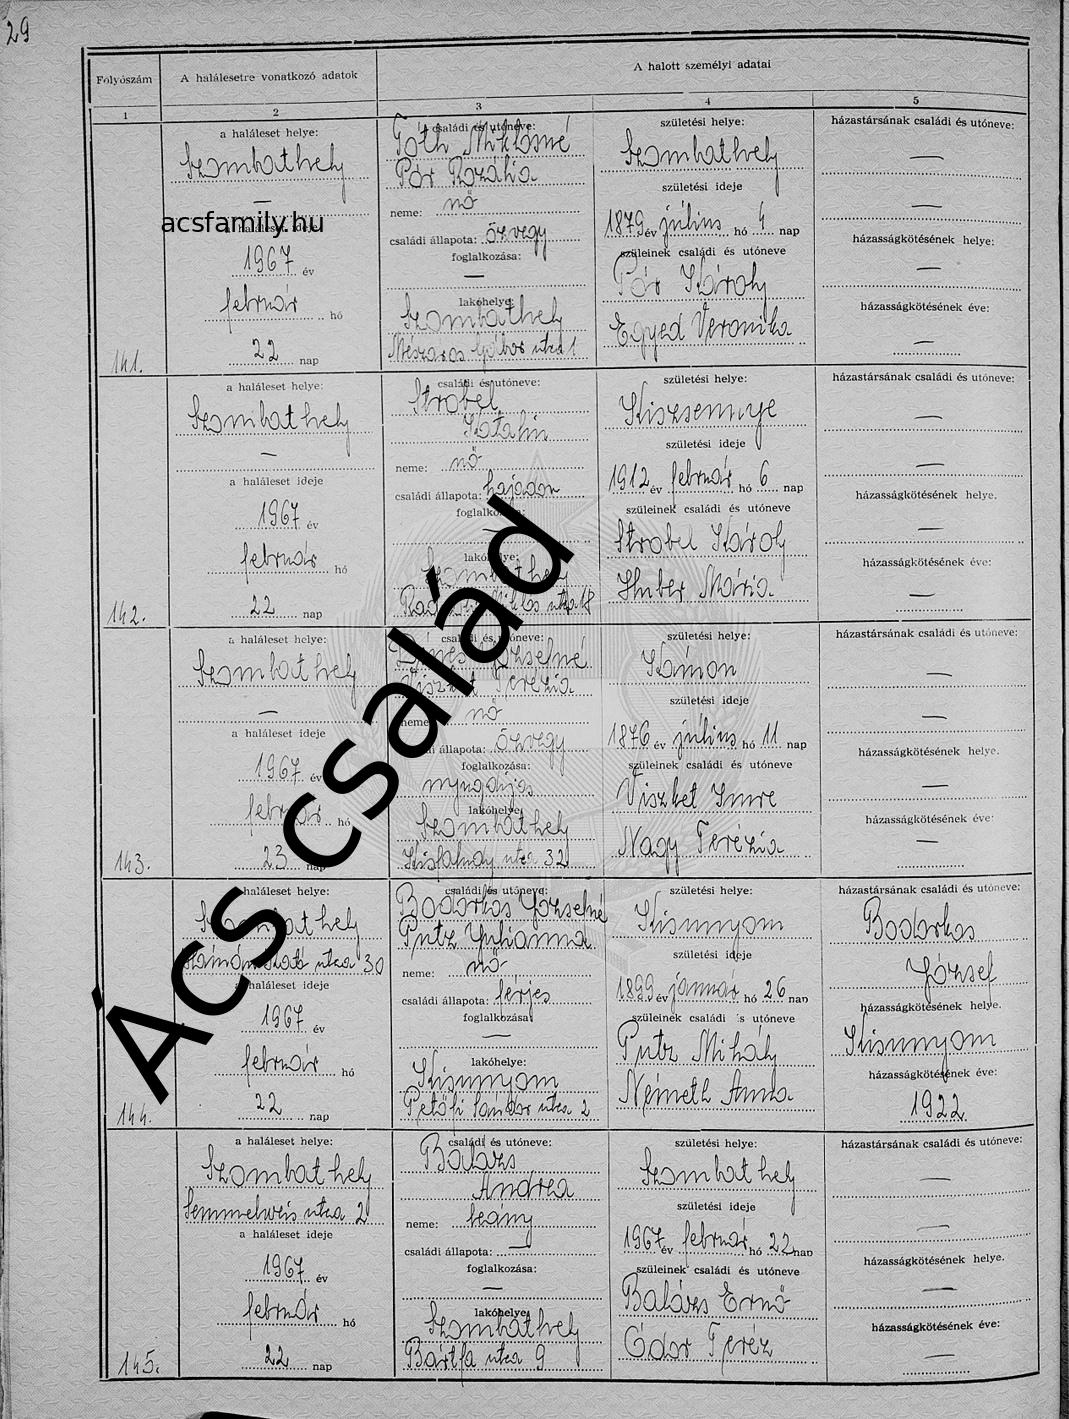 29
Folyószám
A halálesetre vonatkozó adatok
A halott személyi adatai
1
2
3
4
5
141.
a haláleset helye:
Szombathely
—
acsfamily.hu
a haláleset ideje
1967 év
február hó
22 nap
családi és utóneve:
Tóth Miklósné
Pór Rozália
neme: nő
családi állapota: özvegy
foglalkozása:
—
lakóhelye:
Szombathely
Mészáros Gábor utca 1
születési helye:
Szombathely
születési ideje
1879 év július hó 4 nap
szüleinek családi és utóneve
Pór Károly
Egyed Veronika
házastársának családi és utóneve:
—
—
házasságkötésének helye:
—
házasságkötésének éve:
—
142.
a haláleset helye:
Szombathely
—
a haláleset ideje
1967 év
február hó
22 nap
családi és utóneve:
Strobel
Katalin
neme: nő
családi állapota: hajadon
foglalkozása:
—
lakóhelye:
Szombathely
utca 18
születési helye:
Kiszsennye
születési ideje
1912 év február hó 6 nap
szüleinek családi és utóneve
Strobel Károly
Huber Mária
házastársának családi és utóneve:
—
—
házasságkötésének helye.
—
házasságkötésének éve:
—
143.
a haláleset helye:
Szombathely
—
a haláleset ideje
1967 év
február hó
23 nap
családi és utóneve:
Józsefné
Viszket Terézia
neme: nő
családi állapota: özvegy
foglalkozása:
nyugdíjas
lakóhelye:
Szombathely
Kisfaludy utca 32
születési helye:
Kámon
születési ideje
1876 év július hó 11 nap
szüleinek családi és utóneve
Viszket Imre
Nagy Terézia
házastársának családi és utóneve:
—
—
házasságkötésének helye.
—
házasságkötésének éve:
—
144.
a haláleset helye:
Szombathely
utca 30
a haláleset ideje
1967 év
február hó
22 nap
családi és utóneve:
Bodorkos Józsefné
Putz Julianna
neme: nő
családi állapota: férjes
foglalkozása
—
lakóhelye:
Kisunyom
Petőfi Sándor utca 2
születési helye:
Kisunyom
születési ideje
1899 év január hó 26 nap
szüleinek családi és utóneve
Putz Mihály
Németh Anna
házastársának családi és utóneve:
Bodorkos
József
házasságkötésének helye.
Kisunyom
házasságkötésének éve:
1922
145.
a haláleset helye:
Szombathely
Semmelweis utca 2
a haláleset ideje
1967 év
február hó
22 nap
családi és utóneve:
Balázs
Andrea
neme: leány
családi állapota: —
foglalkozása:
—
lakóhelye:
Szombathely
Bártfa utca 9
születési helye:
Szombathely
születési ideje
1967 év február hó 22 nap
szüleinek családi és utóneve
Balázs Ernő
Ódor Teréz
házastársának családi és utóneve:
—
—
házasságkötésének helye.
—
házasságkötésének éve:
—
Ács család